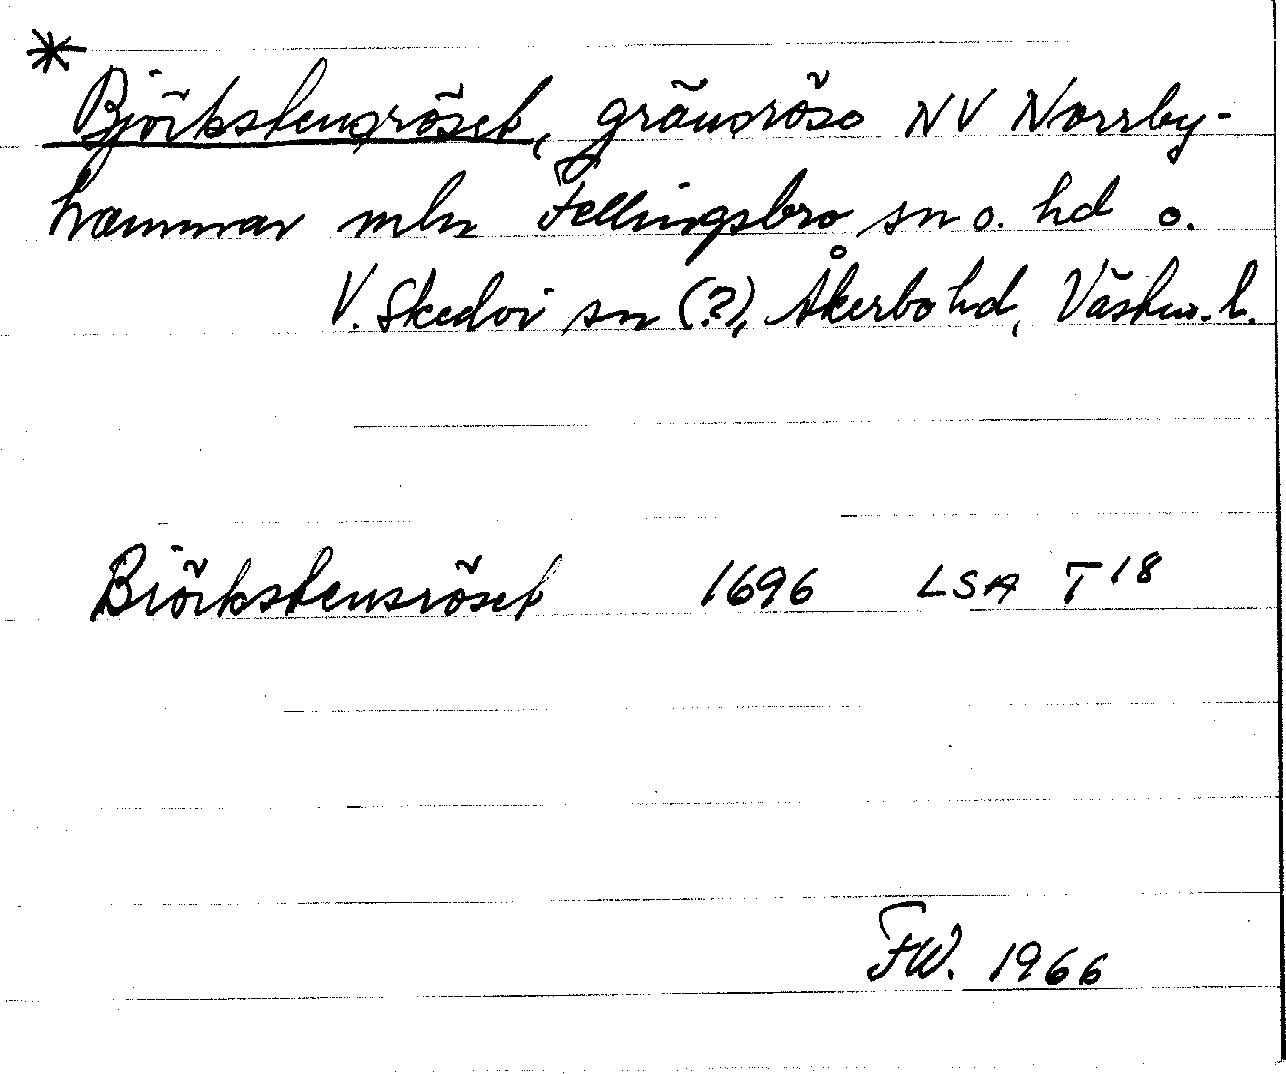 * Björkstensröset, gränsröse NV Norrby-
hammar mln Fellingsbro sn o. hd o.
V. Skedvi sn (?), Åkerbo hd, Västm. l.
Biörkstensröset 1696 LSA T18
FW. 1966